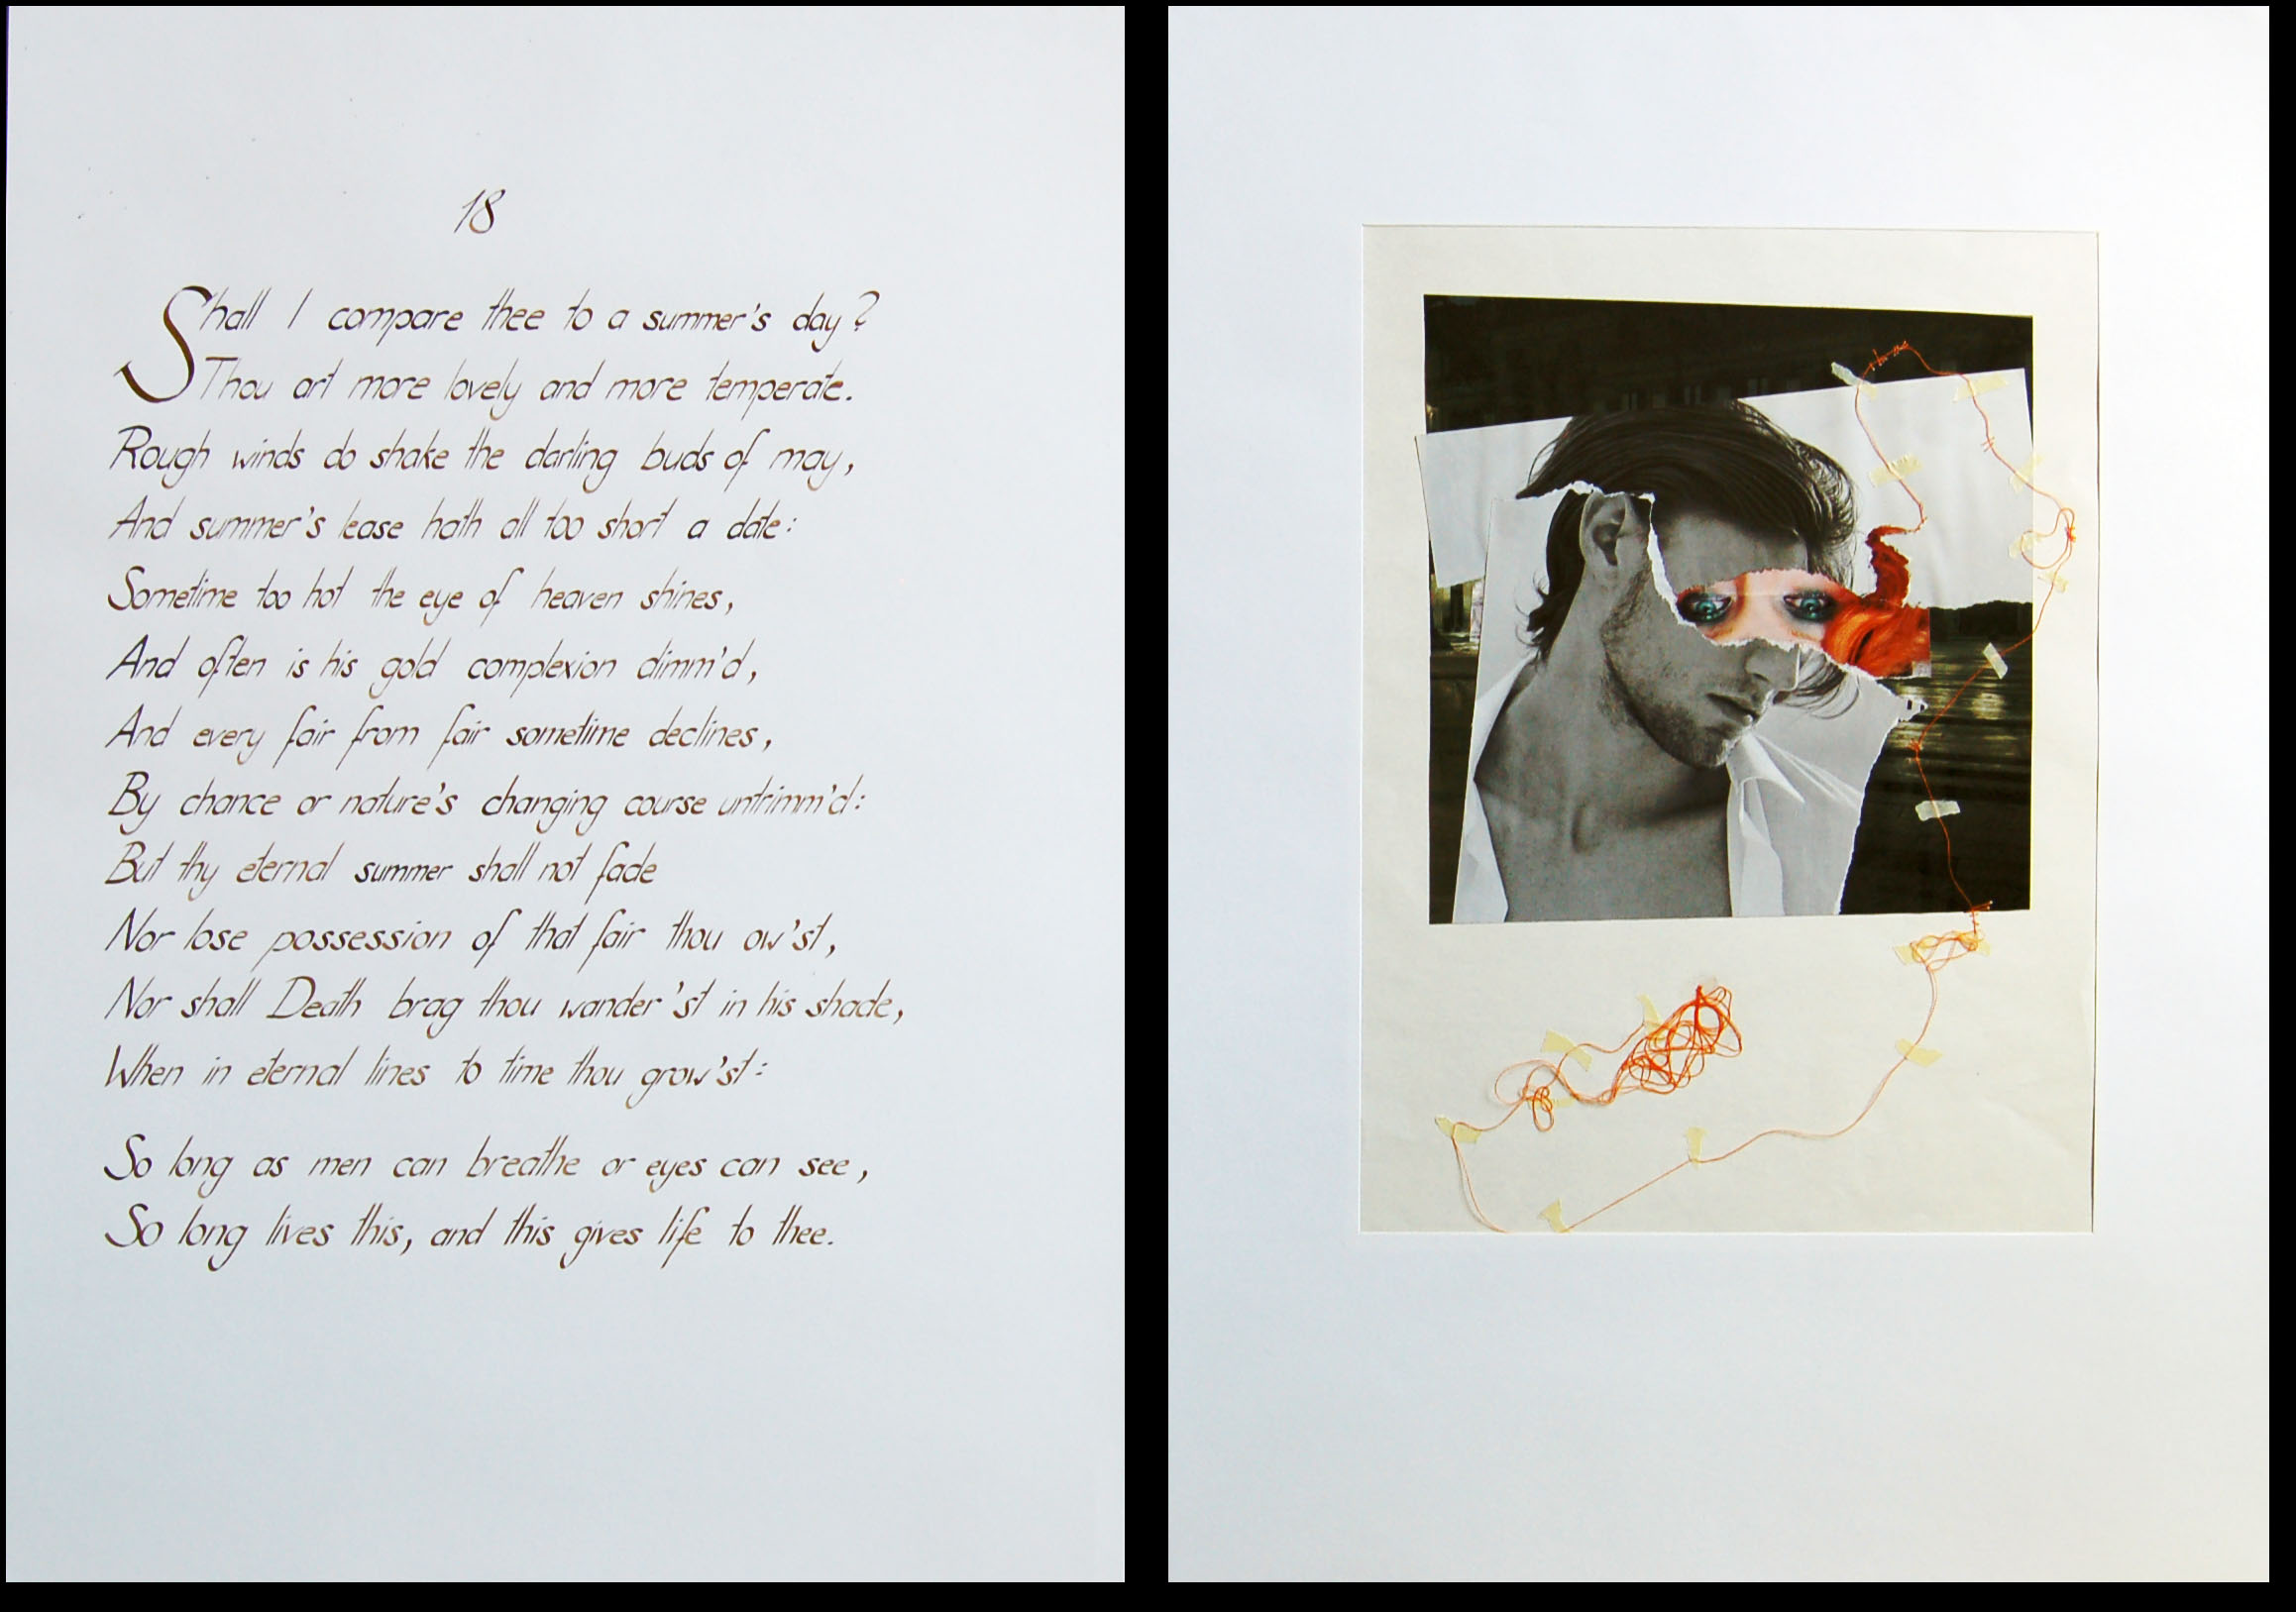 18
Shall I compare thee to a summer's day?
Thou art more lovely and more temperate.
Rough winds do shake the darling buds of may,
And summer's lease hath all too short a date:
Sometime too hot the eye of heaven shines,
And often is his gold complexion dimm'd,
And every fair from fair sometime declines,
By chance or nature's changing course untrimm'd:
But thy eternal summer shall not fade
Nor lose possession of that fair thou ow'st,
Nor shall Death brag thou wander'st in his shade,
When in eternal lines to time thou grow'st:
So long as men can breathe or eyes can see,
So long lives this, and this gives life to thee.